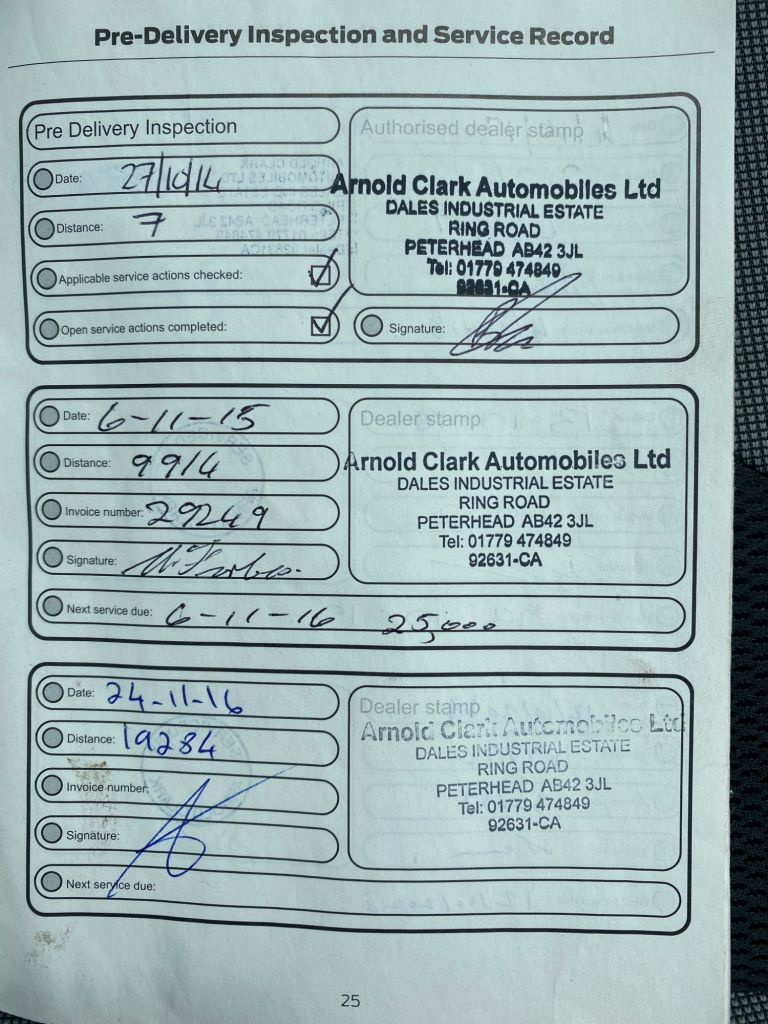 Pre-Delivery Inspection and Service Record
Pre Delivery Inspection
Date: 27/10/14
Distance: 7
Applicable service actions checked:
Open service actions completed:
Authorised dealer stamp
Arnold Clark Automobiles Ltd
DALES INDUSTRIAL ESTATE
RING ROAD
PETERHEAD AB42 3JL
Tel: 01779 474849
92631-CA
Signature:
Date: 6-11-15
Distance: 9914
Invoice number: 29249
Signature:
Next service due: 6-11-16 25,000
Dealer stamp
Arnold Clark Automobiles Ltd
DALES INDUSTRIAL ESTATE
RING ROAD
PETERHEAD AB42 3JL
Tel: 01779 474849
92631-CA
Date: 24-11-16
Distance: 19284
Invoice number:
Signature:
Next service due:
Dealer stamp
Arnold Clark Automobiles Ltd
DALES INDUSTRIAL ESTATE
RING ROAD
PETERHEAD AB42 3JL
Tel: 01779 474849
92631-CA
25